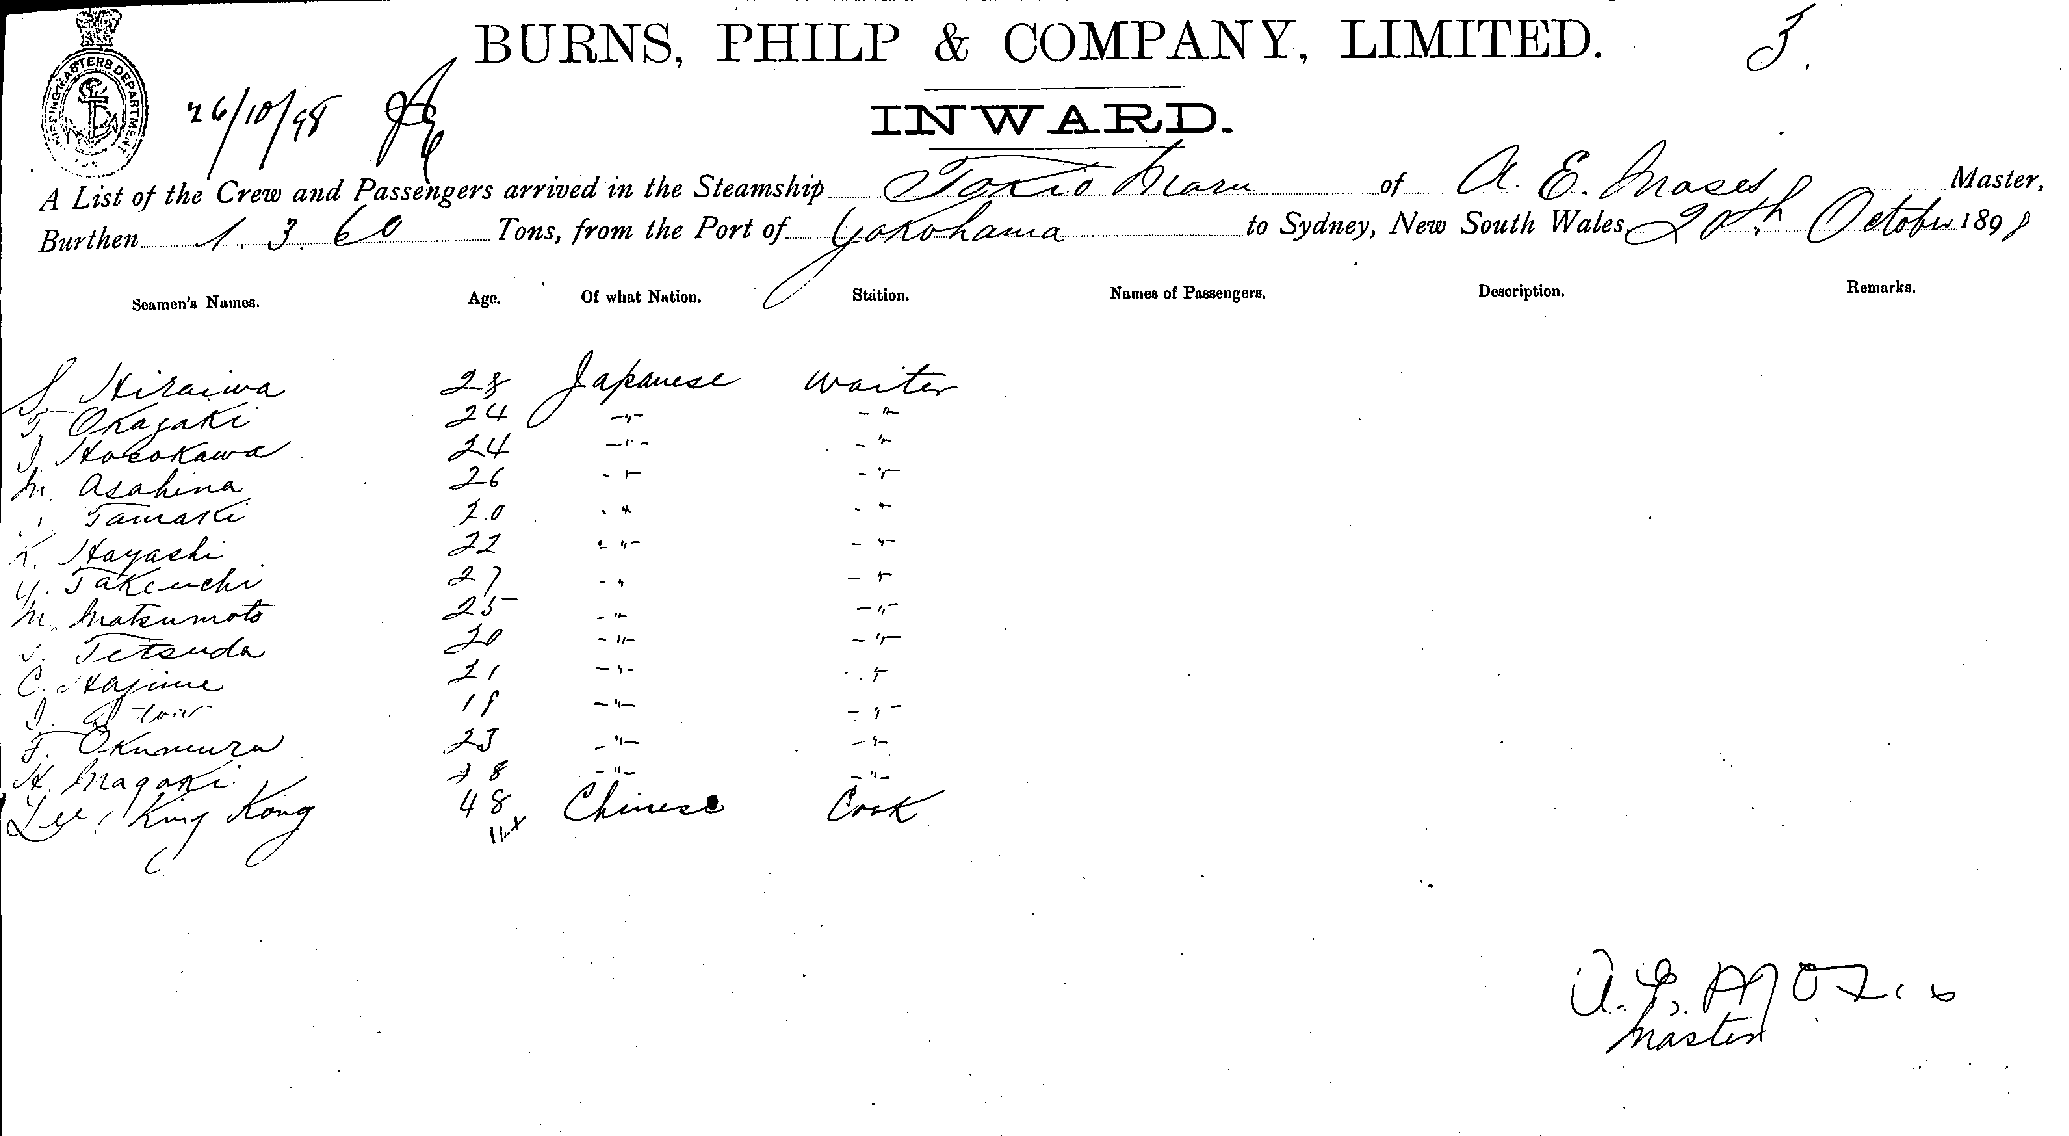 BURNS, PHILP & COMPANY, LIMITED. 3.
SHIPPING MASTERS DEPARTMENT
26/10/98
INWARD.
A List of the Crew and Passengers arrived in the Steamship Tokio Maru of A. E. Moses Master,
Burthen 1.3.60 Tons, from the Port of Yokohama to Sydney, New South Wales 20th October 1898
Seamen's Names. Age. Of what Nation. Station. Names of Passengers. Description. Remarks.
S Hiraiwa 28 Japanese waiter
T. Okazaki 24 -"- -"-
J. Hosokawa 24 -"- -"-
M. Asahina 26 -"- -"-
Tamaki 20 -"- -"-
K. Hayashi 22 -"- -"-
Y. Takeuchi 27 -"- -"-
M. Matsumoto 25 -"- -"-
Tetsuda 20 -"- -"-
C. Hajime 21 -"- -"-
J. 19 -"- -"-
F. Okumura 23 -"- -"-
H. Nagaki 28 -"- -"-
Lee King Kong 48 Chinese Cook
A. E. Moses
Master